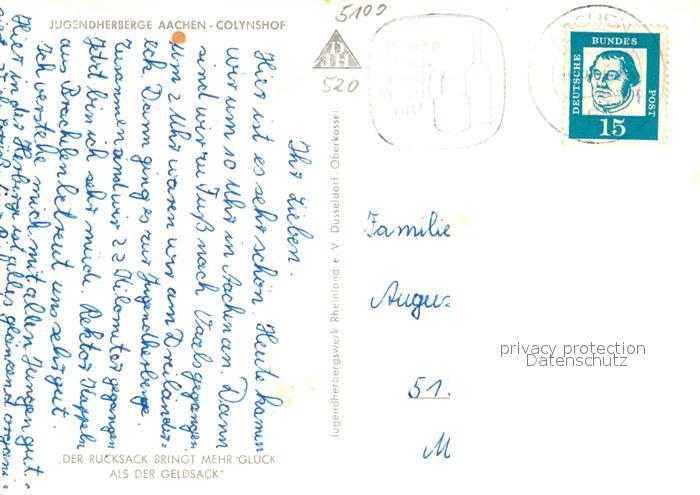 JUGENDHERBERGE AACHEN - COLYNSHOF
5100
520
DJH
DEUTSCHE BUNDES POST
15
Ihr Lieben.
Hier ist es sehr schön. Heute kamen
wir um 10 Uhr in Aachen an. Dann
sind wir zu Fuß nach Vaals gegangen
um 2 Uhr waren wir am Dreiländer=
eck. Dann ging es zur Jugendherberge.
Zusammen sind wir 22 Kilometer gegangen
Jetzt bin ich sehr müde. Rektor Kappeln
aus Brachelen betreut uns sehr gut.
Ich verstehe mich mit allen Jungen gut.
Hier in der Herberge ist alles glänzend organi=
Jugendherbergswerk Rheinland e. V. Düsseldorf-Oberkassel
Familie
Augus
51
M
privacy protection
Datenschutz
„DER RUCKSACK BRINGT MEHR GLÜCK
ALS DER GELDSACK"